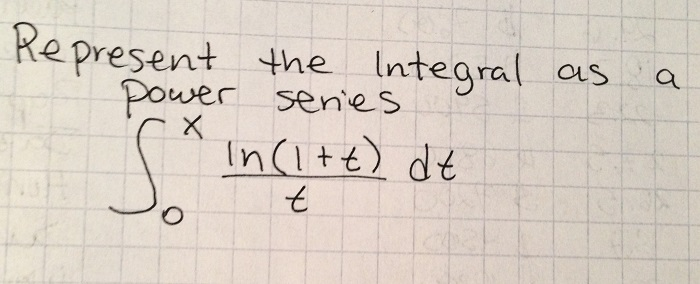 Represent the Integral as a
power series
∫₀ˣ ln(1+t)/t dt